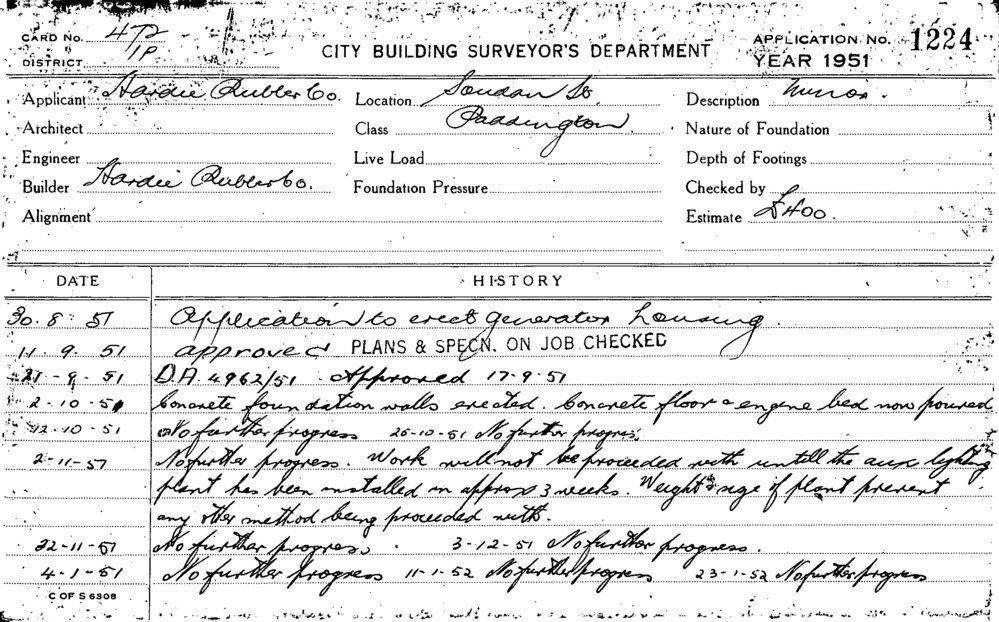 CARD NO. 472
DISTRICT 1P
CITY BUILDING SURVEYOR'S DEPARTMENT
APPLICATION NO. 1224
YEAR 1951
Applicant Hardie Rubber Co. Location Soudan St. Description Minor.
Architect Class Paddington Nature of Foundation
Engineer Live Load Depth of Footings
Builder Hardie Rubber Co. Foundation Pressure Checked by
Alignment Estimate £400.
DATE HISTORY
30.8.51 Application to erect generator housing.
11.9.51 approved PLANS & SPECN. ON JOB CHECKED
21-9-51 D.A. 4962/51. Approved 17-9-51
2-10-51 Concrete foundation walls erected. Concrete floor & engine bed now poured
12-10-51 No further progress 25-10-51 No further progress.
2-11-51 No further progress. Work will not be proceeded with untill the aux lighting
plant has been installed in approx 3 weeks. Weight & size of plant prevent
any other method being proceeded with.
22-11-51 No further progress. 3-12-51 No further progress.
4-1-51 No further progress 11-1-52 No further progress 23-1-52 No further progress
C OF S 6308